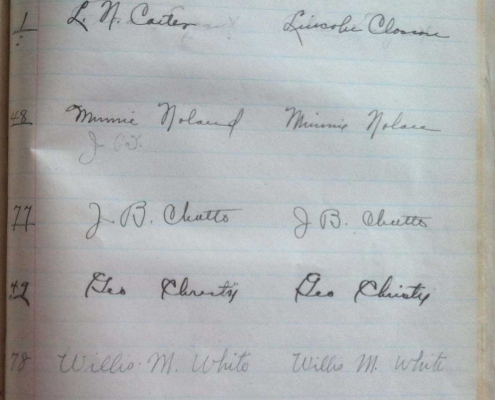 1 L. N. Carter Lincoln
48 Minnie Noland Minnie
J.
77 J. B. Chatto J B. Chatto
49 Geo Christy Geo Christy
78 Willis M. White Willis M. White